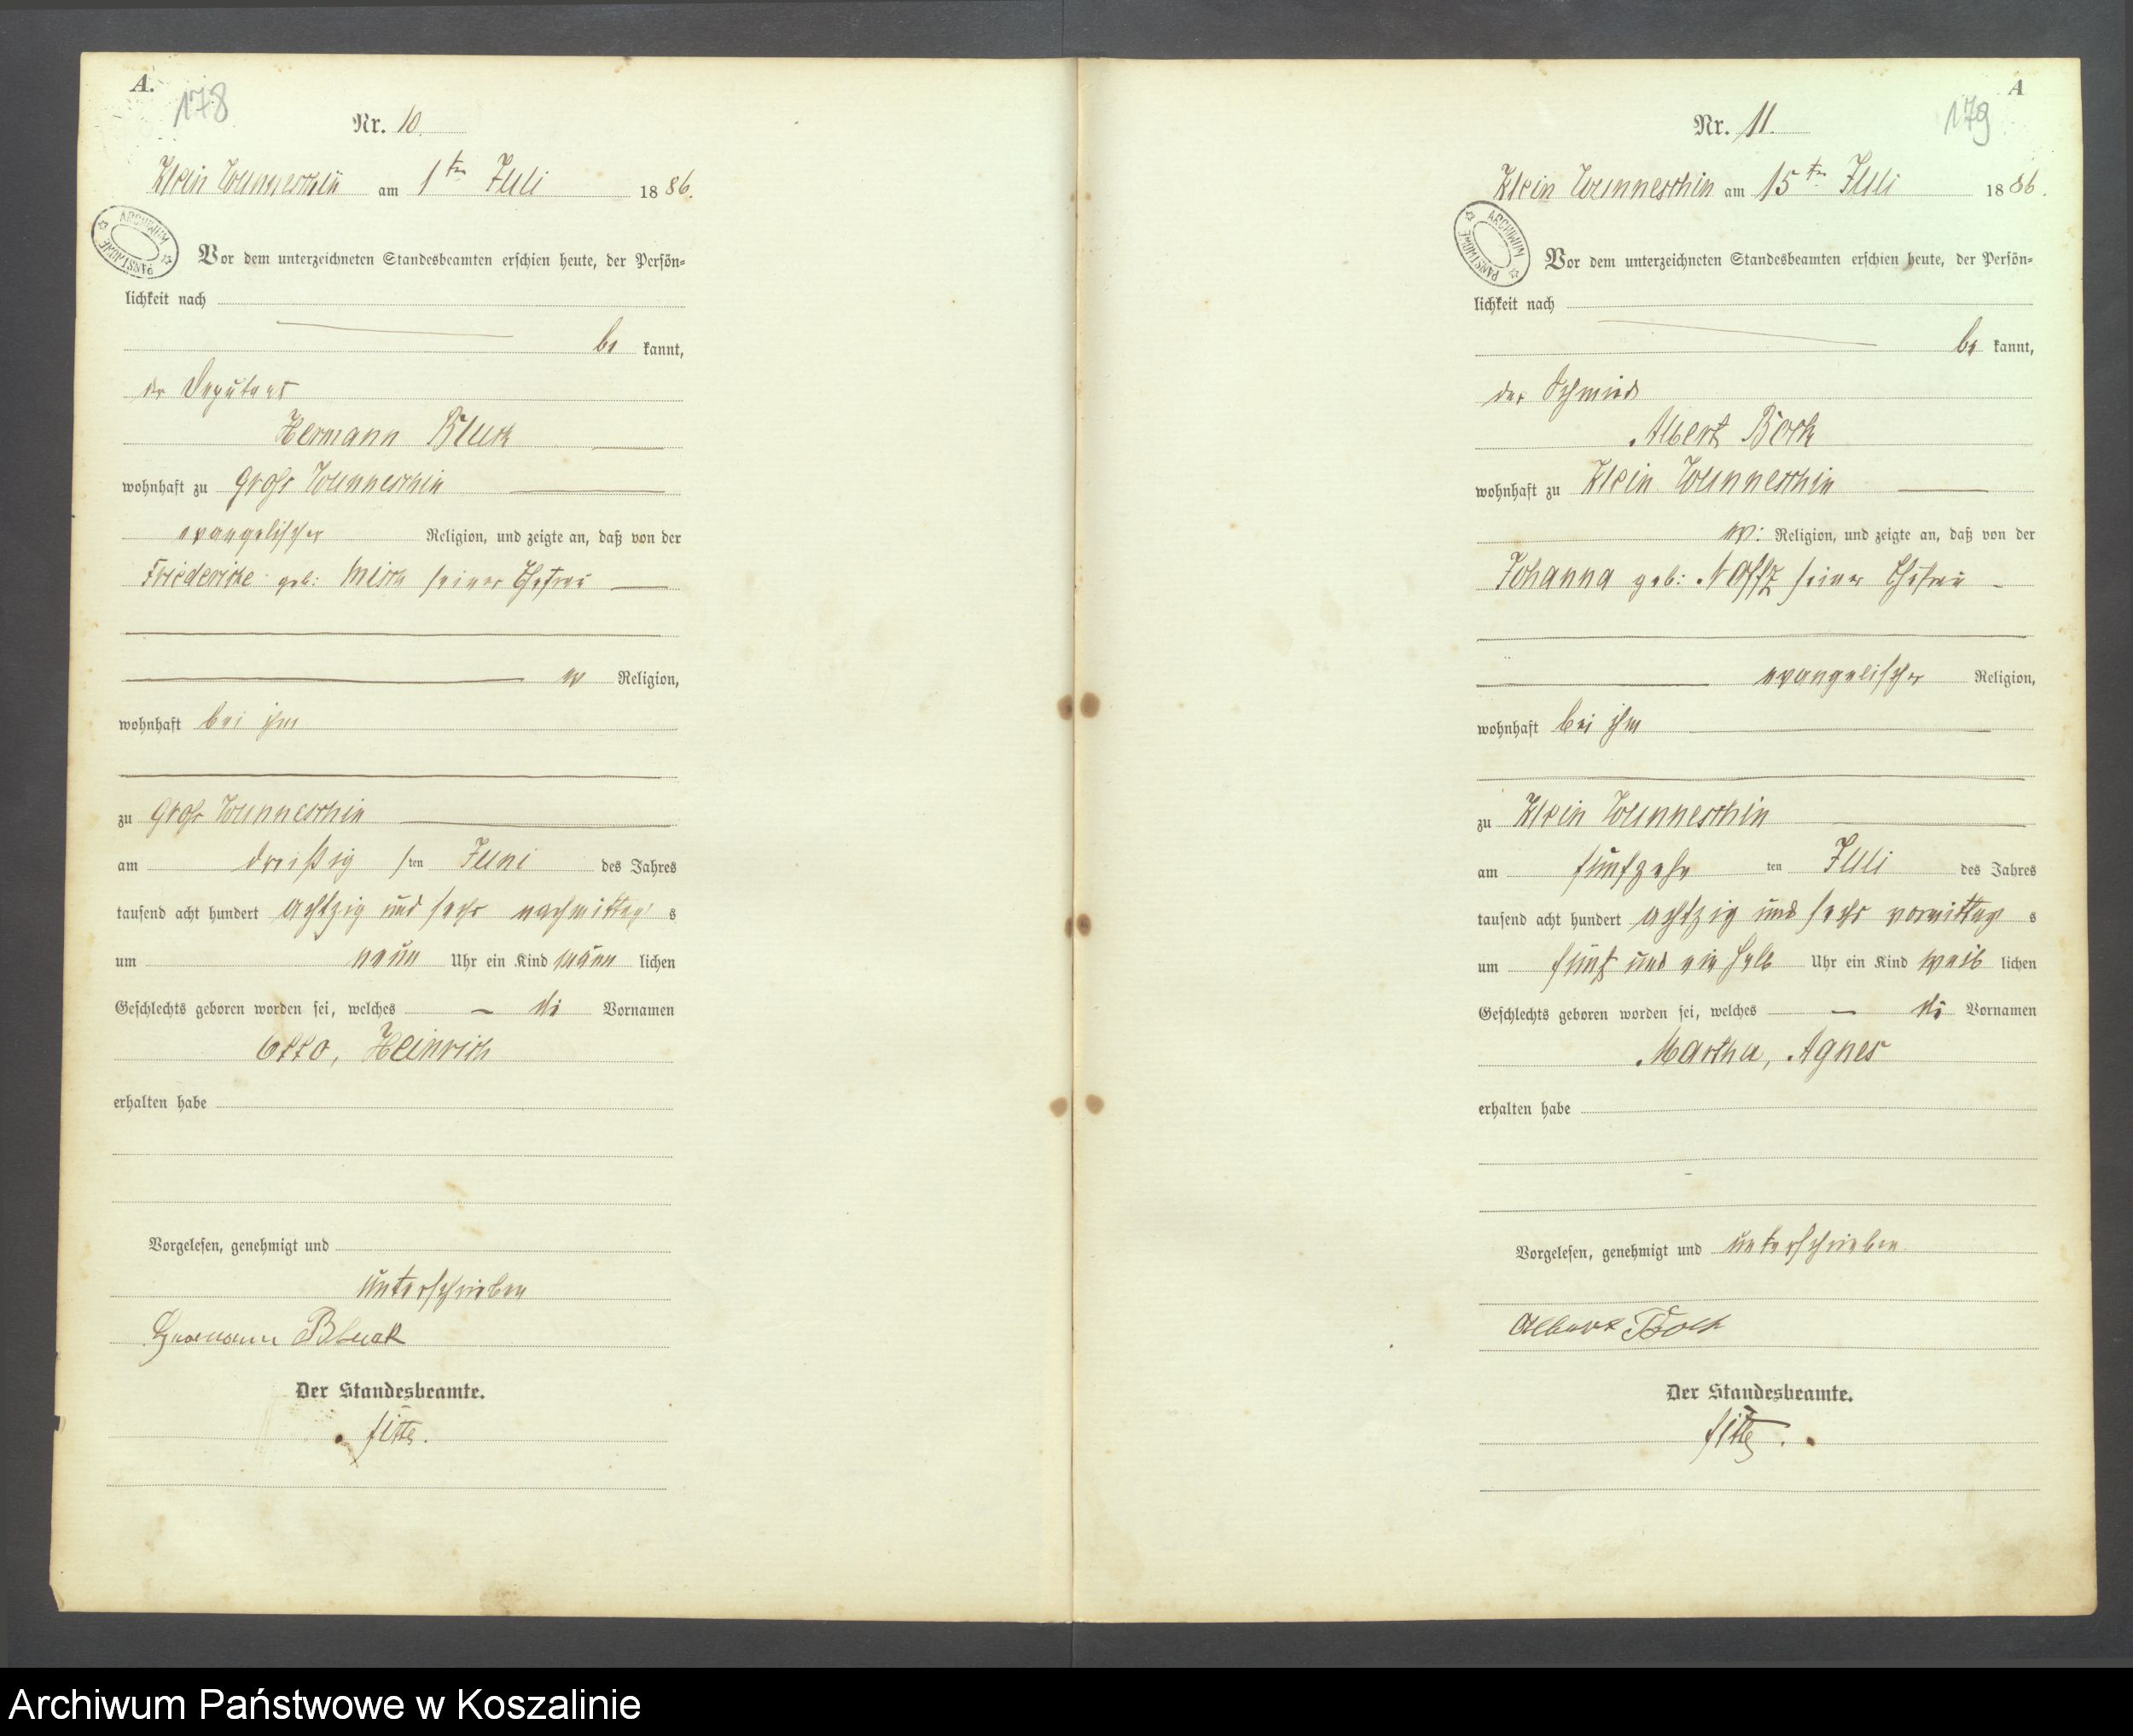 A.
178
Nr. 10.
Klein Wunneschin am 1ten Juli 1886.
ARCHIWUM PAŃSTWOWE
Vor dem unterzeichneten Standesbeamten erschien heute, der Persön=
lichkeit nach
be kannt,
der Deputant
Hermann Bluck
wohnhaft zu Groß Wunneschin
evangelischer Religion, und zeigte an, daß von der
Friedericke geb: seiner Ehefrau
ev Religion,
wohnhaft bei ihm
zu Groß Wunneschin
am dreißig sten Juni des Jahres
tausend acht hundert achtzig und sechs nachmittag s
um neun Uhr ein Kind männ lichen
Geschlechts geboren worden sei, welches die Vornamen
Otto, Heinrich
erhalten habe
Vorgelesen, genehmigt und
unterschrieben
Hermann Bluck
Der Standesbeamte.
A
179
Nr. 11.
Klein Wunneschin am 15ten Juli 1886.
ARCHIWUM PAŃSTWOWE
Vor dem unterzeichneten Standesbeamten erschien heute, der Persön=
lichkeit nach
be kannt,
der Schmied
Albert Bock
wohnhaft zu Klein Wunneschin
ev: Religion, und zeigte an, daß von der
Johanna geb: seiner Ehefrau
evangelischer Religion,
wohnhaft bei ihm
zu Klein Wunneschin
am fünfzehn ten Juli des Jahres
tausend acht hundert achtzig und sechs vormittag s
um fünf und ein halb Uhr ein Kind weib lichen
Geschlechts geboren worden sei, welches die Vornamen
Martha, Agnes
erhalten habe
Vorgelesen, genehmigt und unterschrieben
Albert Bock
Der Standesbeamte.
Archiwum Państwowe w Koszalinie